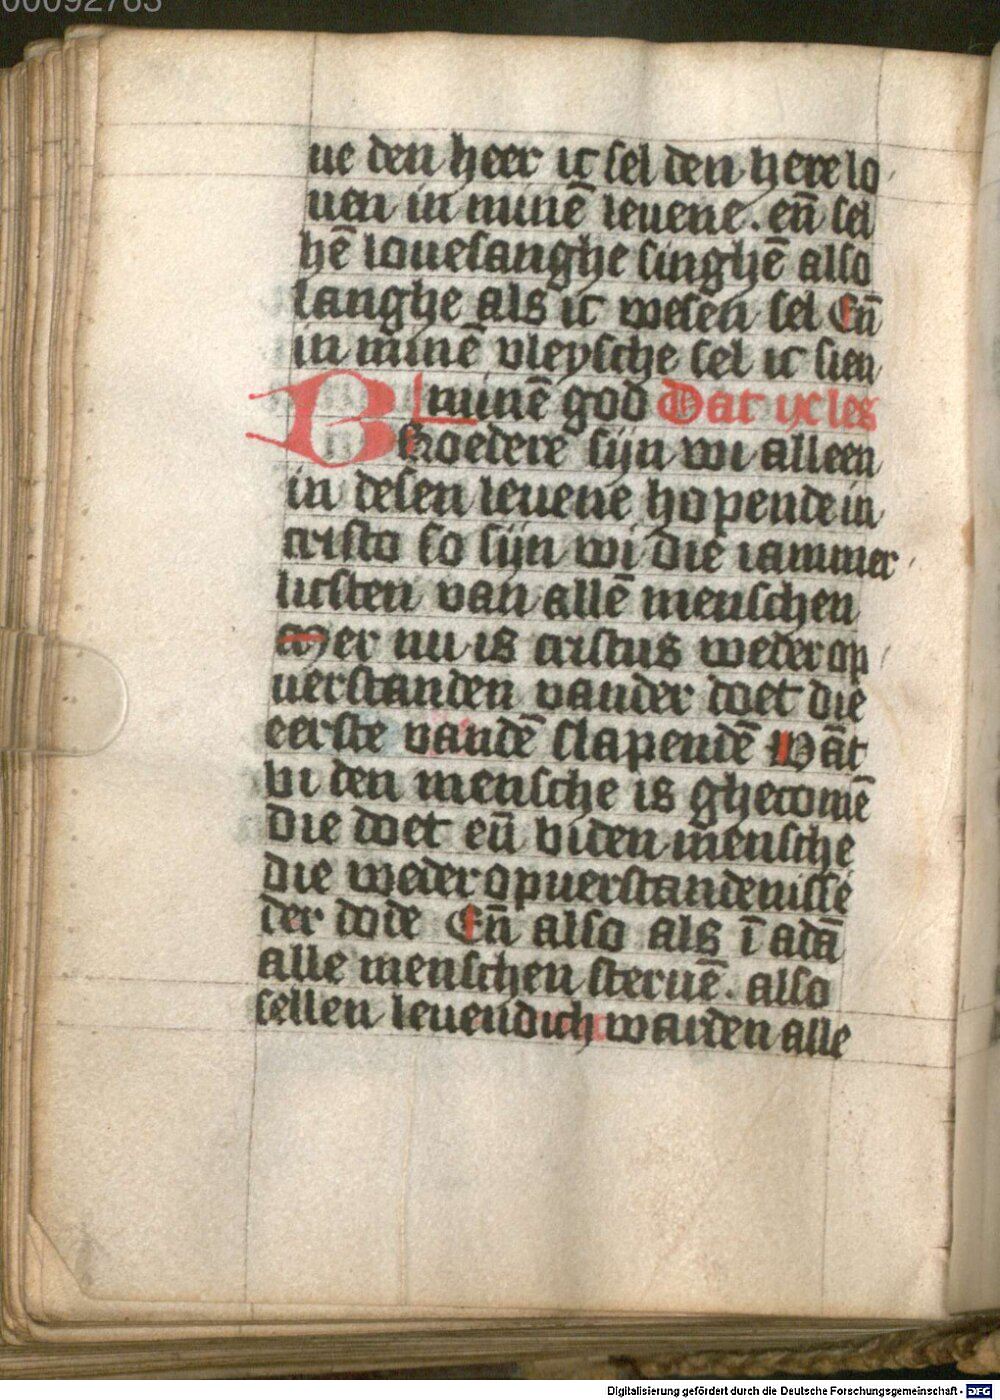 00092783
ue den heer ic sel den here lo
uen in minē leuene. eñ sel
hē louesanghe singhē also
langhe als ic wesen sel Eñ
in minē vleysche sel ic sien
minē god Dat yc les
Broedere sijn wi alleen
in desen leuene hopende in
cristo so sijn wi die iammer
licsten van allē menschen
Mer nu is cristus weder op
uerstanden vander doet die
eerste vandē slapendē Wāt
bi den mensche is ghecomē
die doet eñ biden mensche
die weder opuerstandenisse
der dode Eñ also als ī adā
alle menschen steruē. also
sellen leuendich warden alle
Digitalisierung gefördert durch die Deutsche Forschungsgemeinschaft - DFG